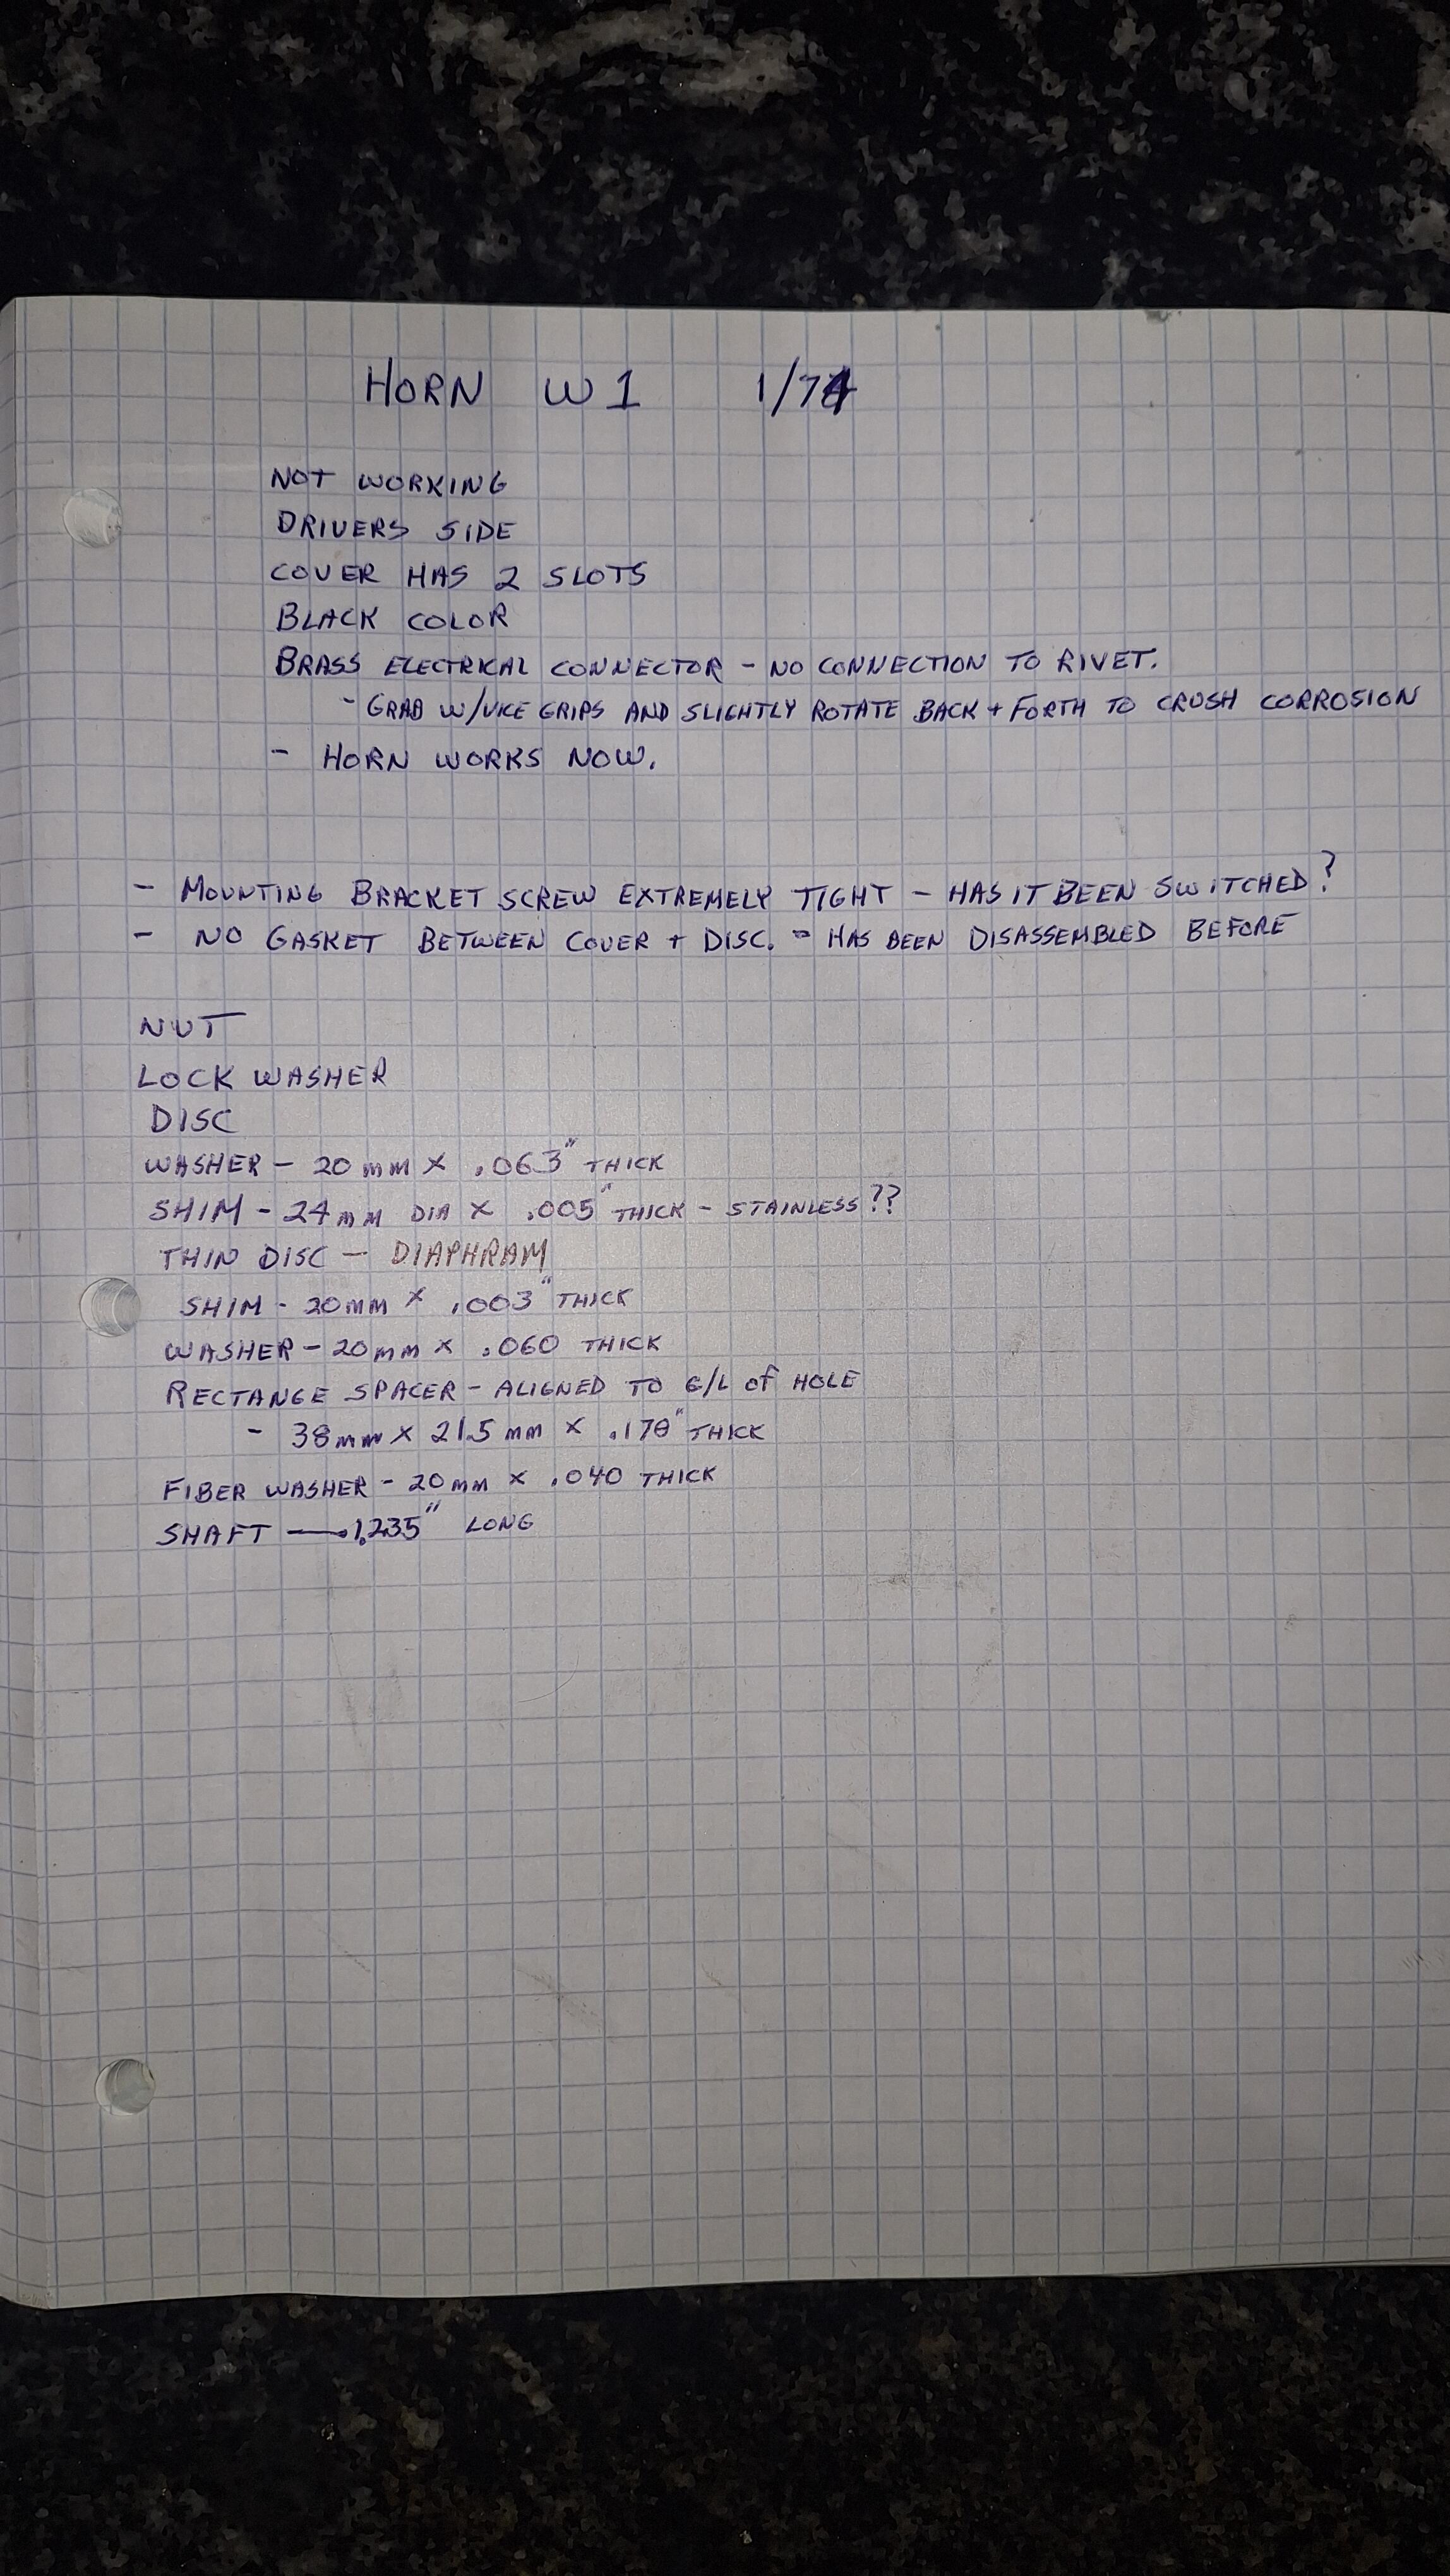 HORN W1 1/74
NOT WORKING
DRIVERS SIDE
COVER HAS 2 SLOTS
BLACK COLOR
BRASS ELECTRICAL CONNECTOR - NO CONNECTION TO RIVET.
- GRAB W/VICE GRIPS AND SLIGHTLY ROTATE BACK + FORTH TO CRUSH CORROSION
- HORN WORKS NOW.
- MOUNTING BRACKET SCREW EXTREMELY TIGHT - HAS IT BEEN SWITCHED?
- NO GASKET BETWEEN COVER + DISC. - HAS BEEN DISASSEMBLED BEFORE
NUT
LOCK WASHER
DISC
WASHER - 20mm X .063" THICK
SHIM - 24mm DIA X .005" THICK - STAINLESS??
THIN DISC - DIAPHRAM
SHIM - 20mm X .003" THICK
WASHER - 20mm X .060 THICK
RECTANGE SPACER - ALIGNED TO C/L of HOLE
- 38mm X 21.5mm X .178" THICK
FIBER WASHER - 20mm X .040 THICK
SHAFT — 1.235" LONG